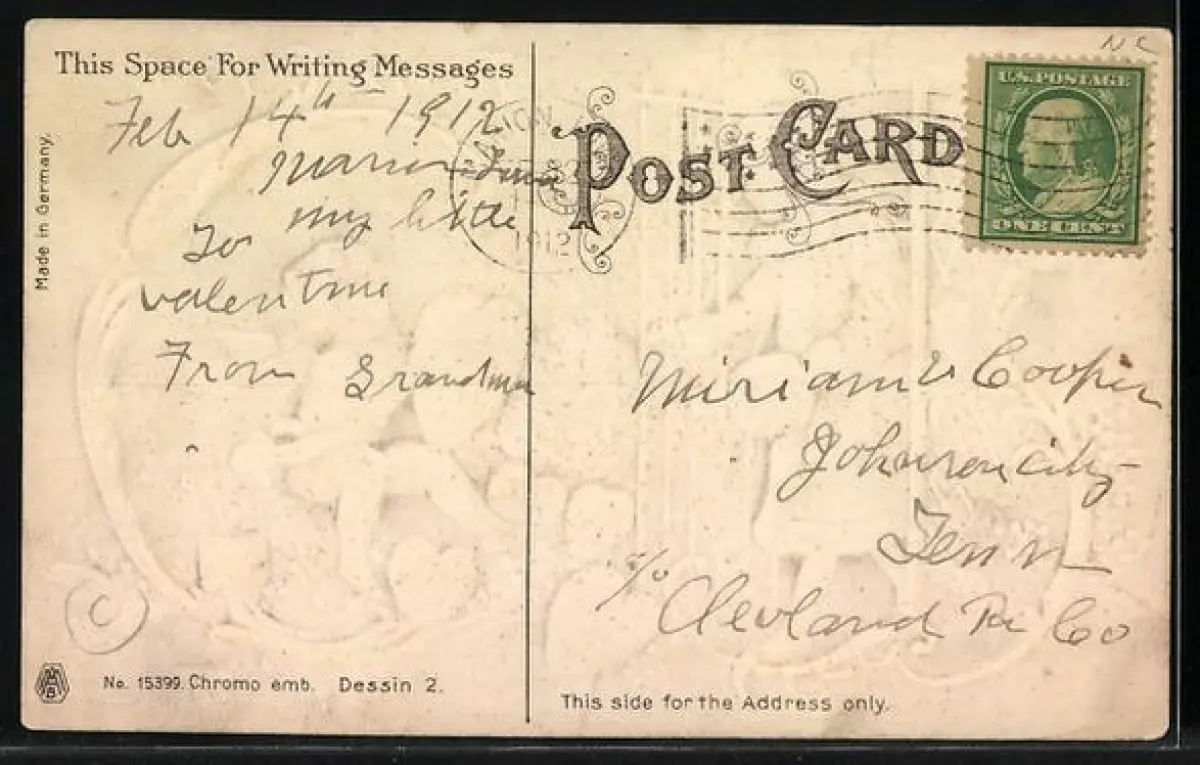 This Space For Writing Messages
Feb 14th 1912
Marion
To my little
valentine
From Grandma
Made in Germany.
No. 15399. Chromo emb. Dessin 2.
C
NC
POST CARD
1912
U.S. POSTAGE
ONE CENT
Miriam Cooper
Johnson city
Tenn
c/o Clevland Co
This side for the Address only.